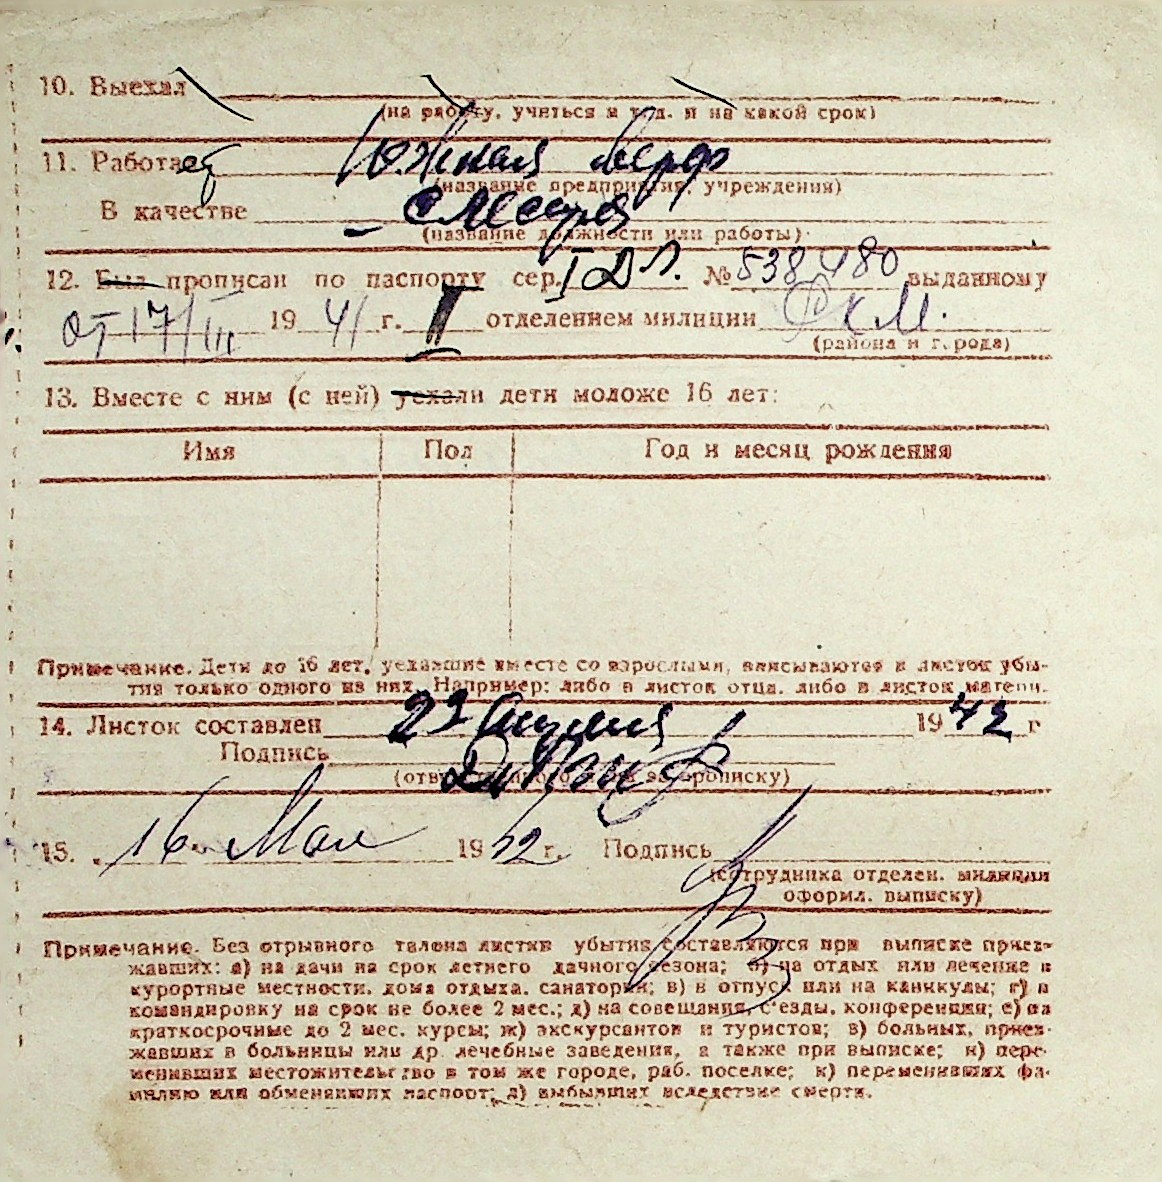 10. Выехал
(на работу, учиться и т.д. и на какой срок)
11. Работает Южная верф
(название предприятия, учреждения)
В качестве – слесаря
(название должности или работы)
12. Был прописан по паспорту сер. I ДЛ. № 538480 выданному
от 17/III 1941 г. II отделением милиции РКМ.
(района и города)
13. Вместе с ним (с ней) уехали дети моложе 16 лет:
Имя Пол Год и месяц рождения
Примечание. Дети до 16 лет, уехавшие вместе со взрослыми, вписываются в листок убы-
тия только одного из них. Например: либо в листок отца, либо в листок матери.
14. Листок составлен 29 Апреля 1942 г
Подпись
(ответственного за прописку)
15. 16 Мая 1942 г. Подпись
(сотрудника отделен. милиции
оформил. выписку)
Примечание. Без отрывного талона листки убытия составляются при выписке приез-
жавших: а) на дачи на срок летнего дачного сезона; б) на отдых или лечение в
курортные местности, дома отдыха, санатории; в) в отпуск или на каникулы; г) в
командировку на срок не более 2 мес.; д) на совещания, съезды, конференции; е) на
краткосрочные до 2 мес. курсы; ж) экскурсантов и туристов; з) больных, приез-
жавших в больницы или др. лечебные заведения, а также при выписке; и) пере-
менивших местожительство в том же городе, раб. поселке; к) переменивших фа-
милию или обменявших паспорт; л) выбывших вследствие смерти.